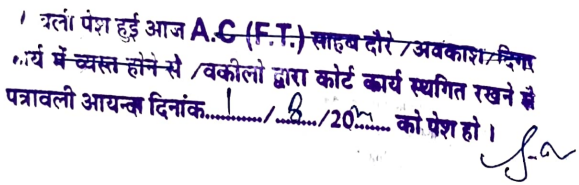 त्रली पेश हुई आज A.C (F.T.) साहब दौरे /अवकाश/
र्य में व्यस्त होने से /वकीलो द्वारा कोर्ट कार्य स्थगित रखने से
पत्रावली आयन्दा दिनांक............/......../20...... को पेश हो ।